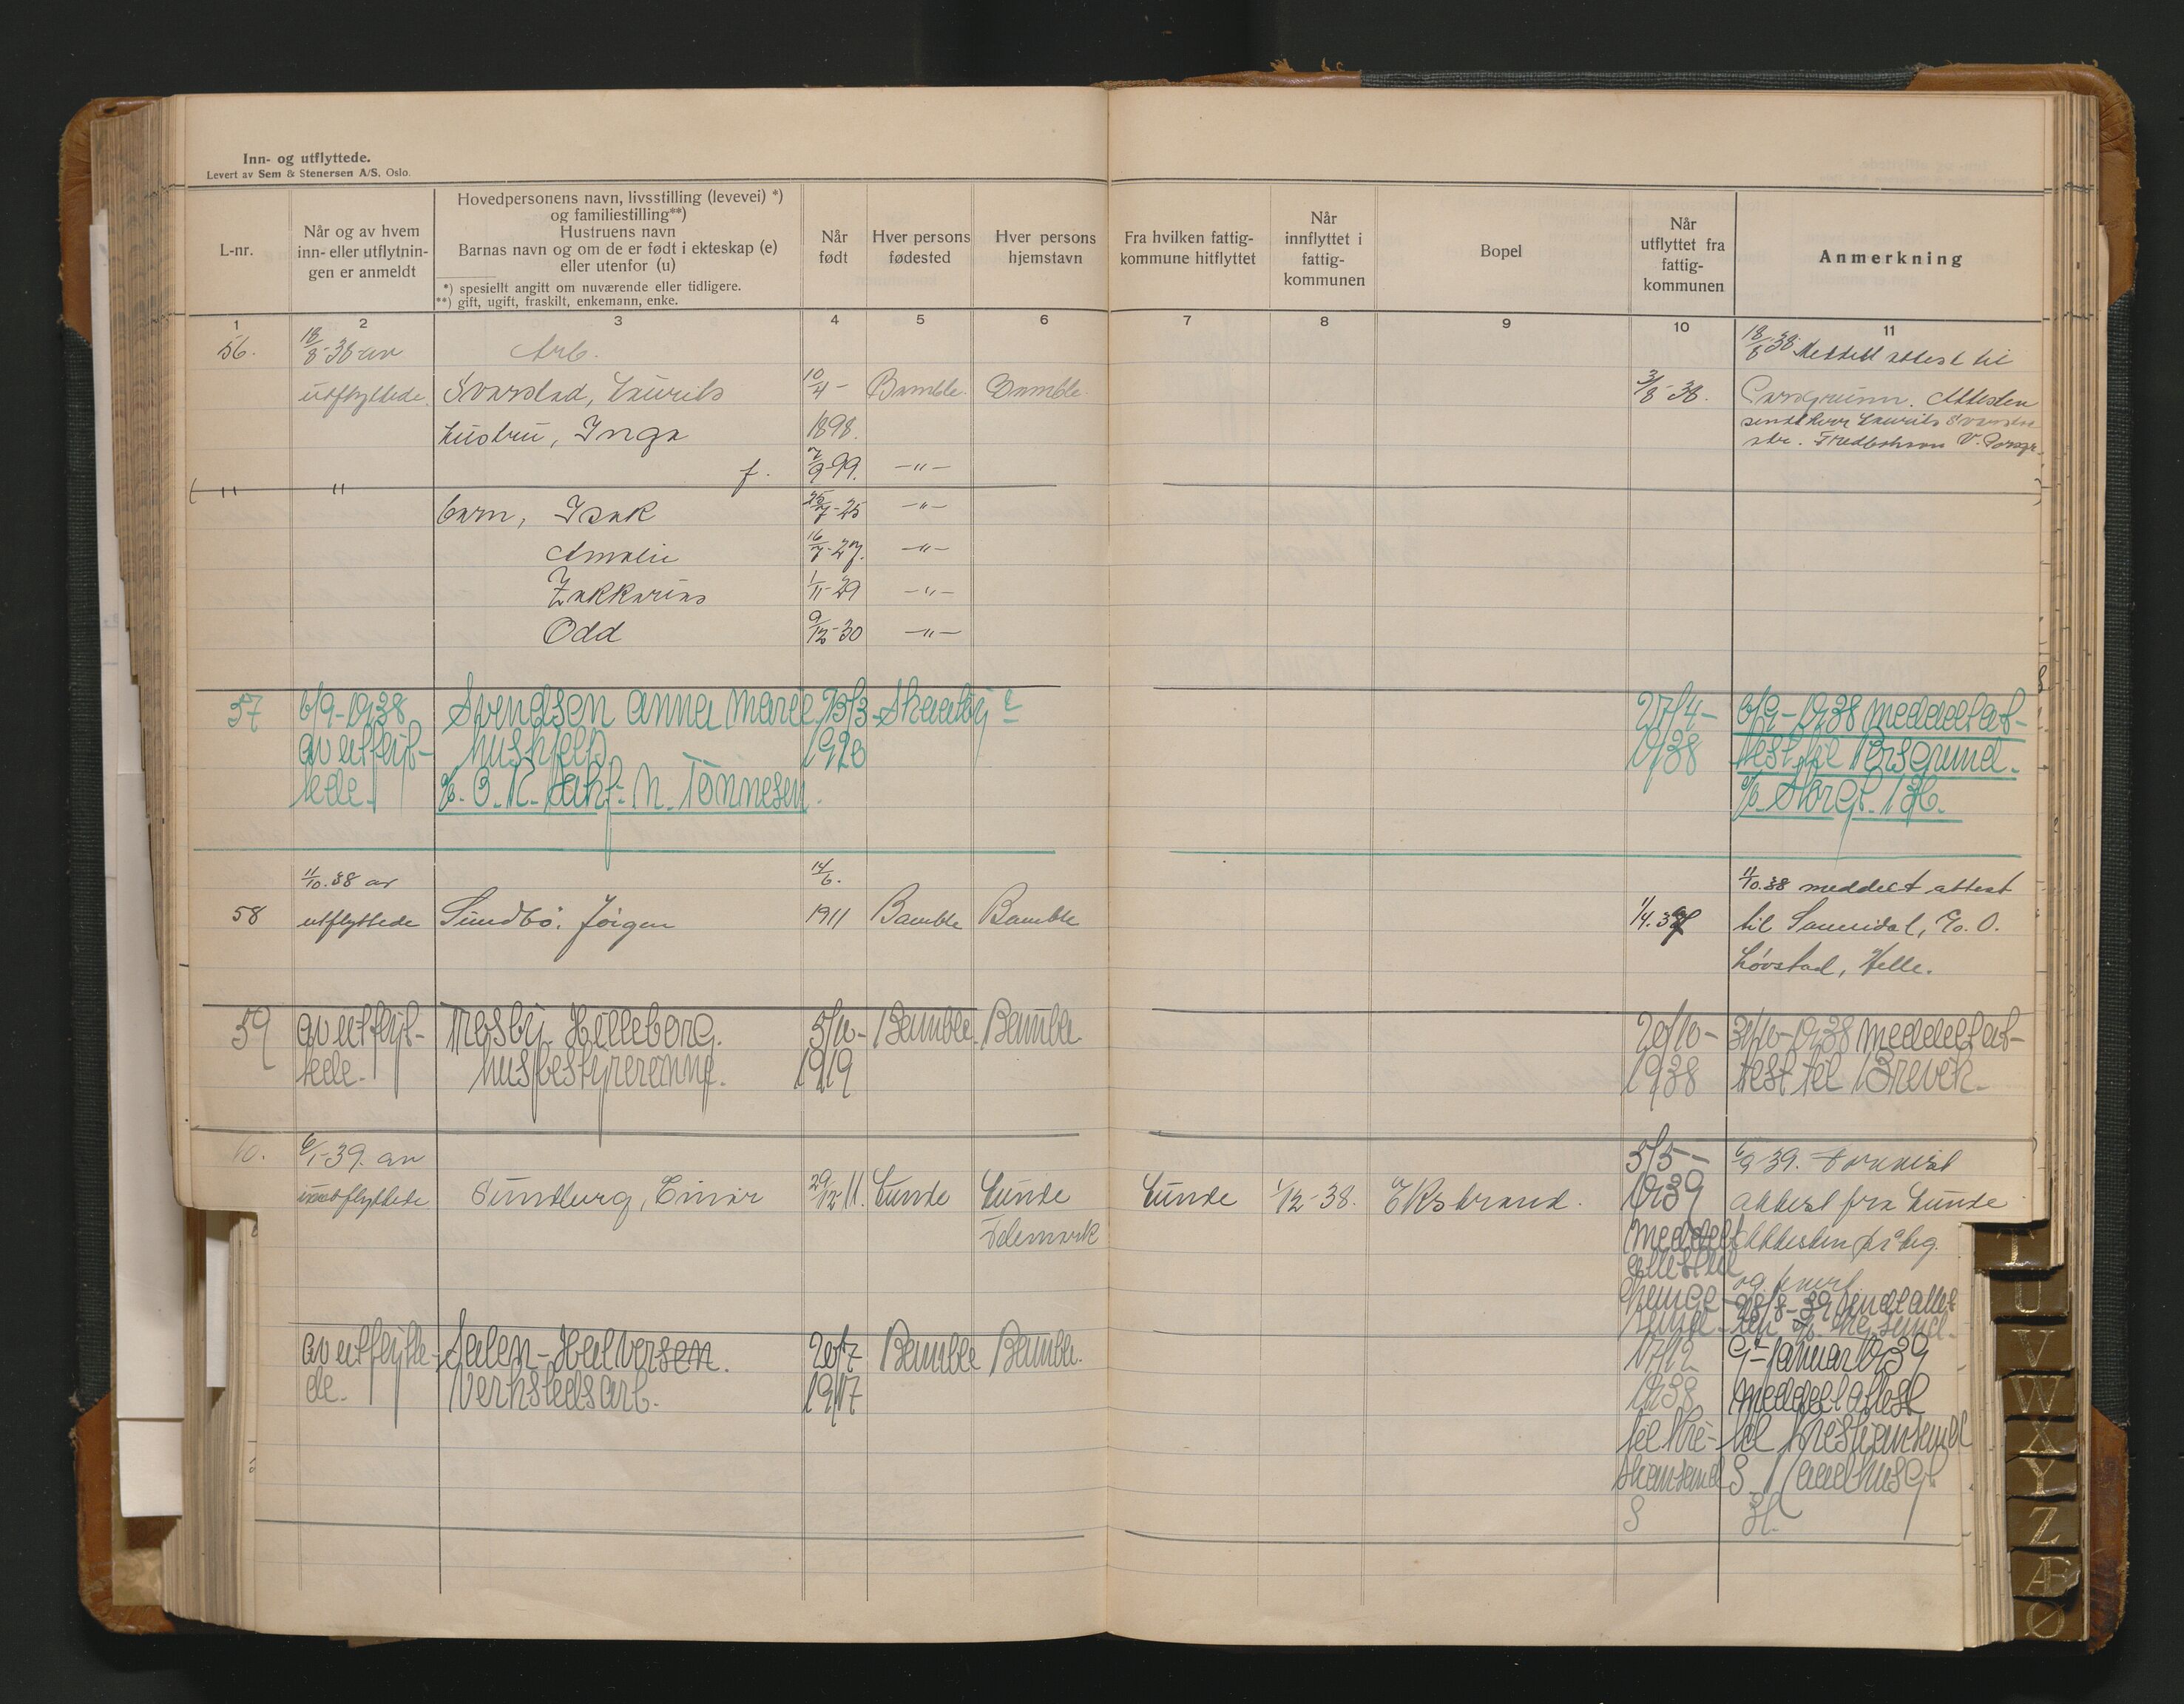 Inn- og utflyttede.
Levert av Sem & Stenersen A/S, Oslo.
L-nr.
Når og av hvem
inn- eller utflytnin-
gen er anmeldt
Hovedpersonens navn, livsstilling (levevei) *)
og familiestilling**)
Hustruens navn
Barnas navn og om de er født i ekteskap (e)
eller utenfor (u)
*) spesiellt angitt om nuværende eller tidligere.
**) gift, ugift, fraskilt, enkemann, enke.
Når
født
Hver persons
fødested
Hver persons
hjemstavn
Fra hvilken fattig-
kommune hitflyttet
Når
innflyttet i
fattig-
kommunen
Bopel
Når
utflyttet fra
fattig-
kommunen
Anmerkning
1 2 3 4 5 6 7 8 9 10 11
56. 18/8-38 av Arb. 18/8-38 Meddelt attest til
utflyttede. Svarstad, Laurits 10/4- Bamble. Bamble. 3/8-38. Porsgrunn. Attesten
hustru, Inga 1898. sendt herr Laurits
f. 7/9-99. -"- V. Porsgr.
" "
barn, Isak 25/7-25 -"-
Amalie 16/7-27. -"-
Zakkarias 1/11-29 -"-
Odd 9/12-30 -"-
57 6/9-1938 Svendsen Anna Marie. 13/3- Skaatøy 27/4- 6/9-1938 meddelt at-
av utflyt- hushjelp 1920 1938 test til Porsgrund.
tede. O. K. N. Tønnesen. Storgt.
11/10.38 av 14/6. 11/10.38 meddelt attest
58 utflyttede Sundbø, Jörgen 1911 Bamble Bamble 1/4. til Sannidal, c/o. O.
Løvstad, Helle.
59 av utflyt- Trosby. Hilleborg. 5/10- Bamble. Bamble. 20/10- 31/10-1938 meddelt at-
tede. husbestyrerinne. 1919 1938 test til Brevik.
60. 6/1-39. av 5/5- 39.
Sundberg, Einar 29/12 11. Lunde Lunde Lunde 1/12-38. Ekstrand. 1939 attest fra Lunde
Telemark meddelt Attesten
attest til og
28/8-39 sendt attes
av utflytte- Salen-Halversen. 20/7 Bamble Bamble. 17/12 9-Januar 1939
de. Verkstedsarb. 1917 1938 meddelt attest
til Kri- til Kristiansand
stiansand S. Raadhusgt.
S
T
U
V
W
X
Y
Z
Æ
Ø